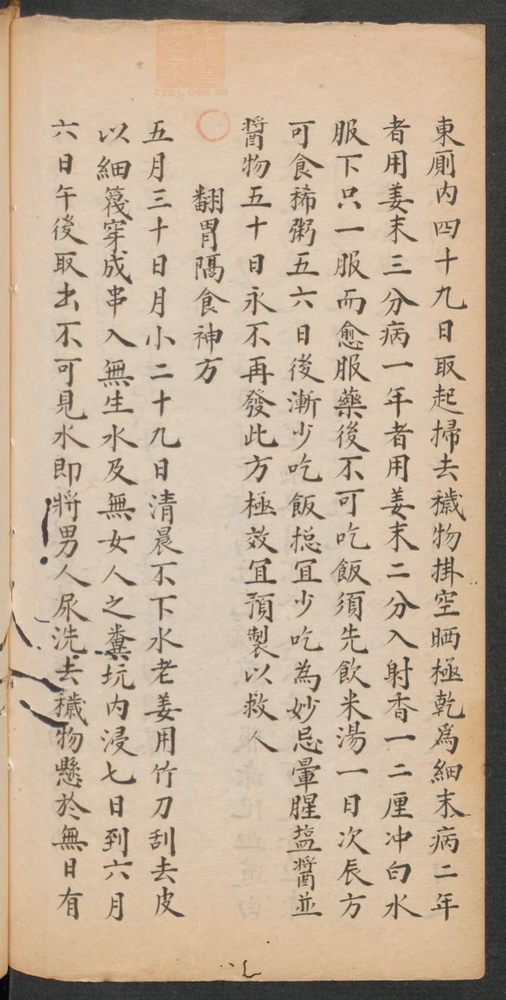 東厠内四十九日取起掃去穢物掛空晒極乾爲細末病二年
者用姜末三分病一年者用姜末二分入射香一二厘冲白水
服下只一服而愈服藥後不可吃飯須先飲米湯一日次辰方
可食稀粥五六日後漸少吃飯揔宜少吃為妙忌暈腥盐醬並
醬物五十日永不再發此方極效宜預製以救人
翻胃隔食神方
五月三十日月小二十九日清晨不下水老姜用竹刀刮去皮
以細篾穿成串入無生水及無女人之糞坑内浸七日到六月
六日午後取出不可見水即將男人尿洗去穢物懸於無日有